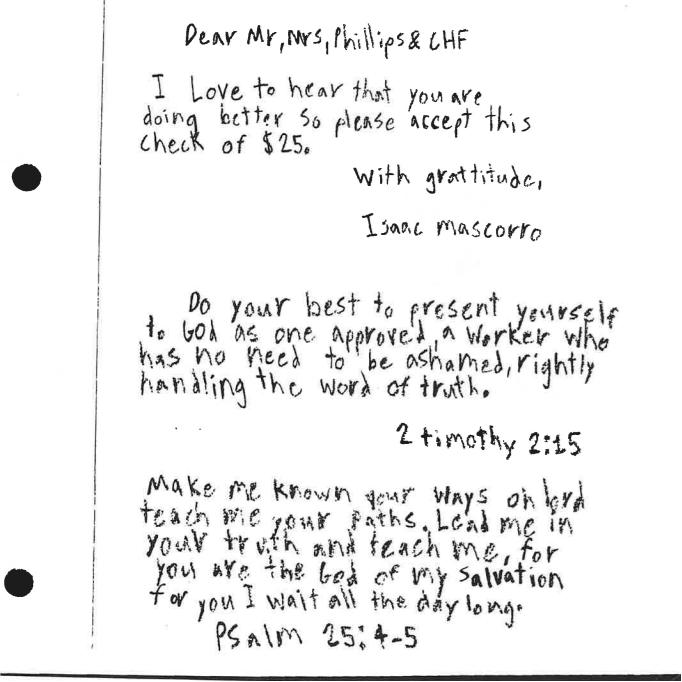 Dear Mr, Mrs, Phillips & CHF
I Love to hear that you are
doing better So please accept this
check of $25.
With grattitude,
Isaac mascorro
Do your best to present yourself
to God as one approved, a worker who
has no need to be ashamed, rightly
handling the word of truth.
2 timothy 2:15
Make me known your ways oh lord
teach me your paths. Lead me in
your truth and teach me, for
you are the God of my salvation
for you I wait all the day long.
PSalm 25:4-5